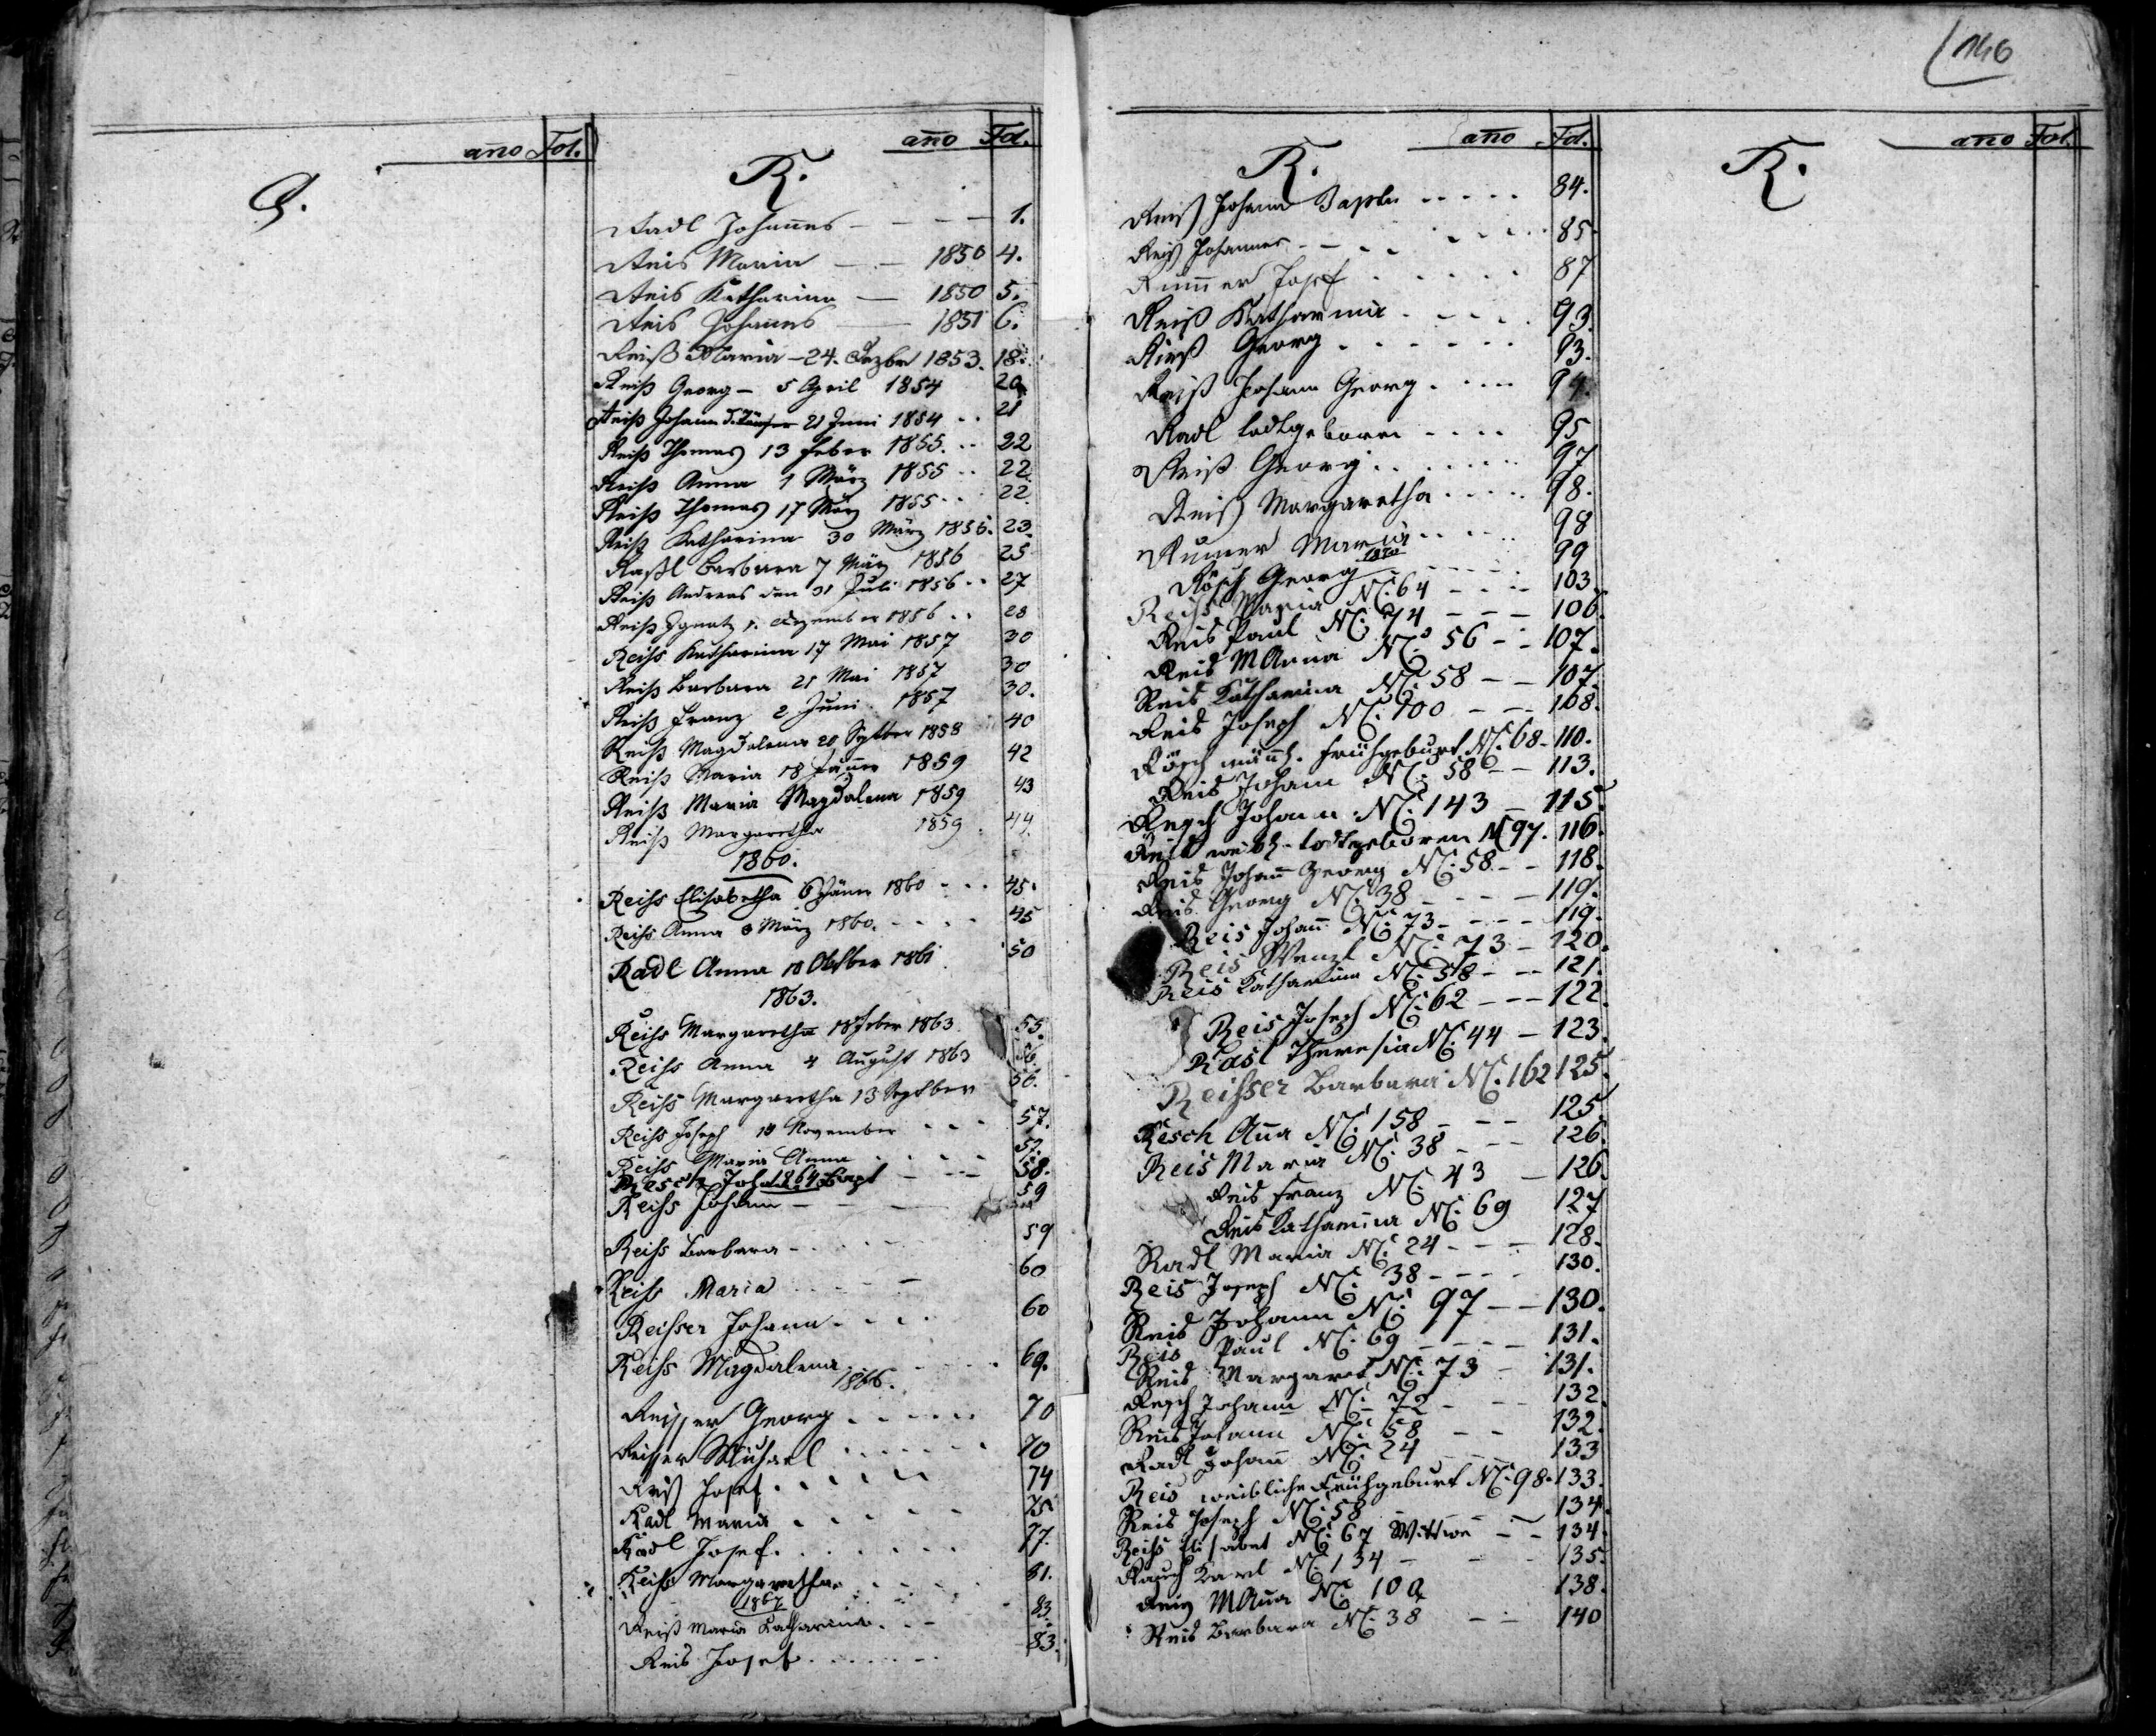 146
año Fol.
Q.
año Fol.
R.
Radl Johannes - - - 1.
Reis Maria - - 1850 4.
Reis Katharina - 1850 5.
Reis Johannes - 1851 6.
Reiß Maria - 24. Dezber 1853. 18.
Reiß Georg - 5 April 1854 20
Reiß Johann d. Täufer 21 Juni 1854 .. 21
Reiß Thomas 13 Feber 1855. .. 22
Reiß Anna 1 März 1855 .. 22
Reiß Thomas 17 März 1855 .. 22
Reiß Katharina 30 März 1856. 23.
Raßl Barbara 7 März 1856 25
Reiß Andreas den 31 Juli 1856 .. 27
Reiß Ignatz 1. Dezember 1856 .. 28
Reiss Katharina 17 Mai 1857 30
Reiß Barbara 21 Mai 1857 30
Reiß Franz 2 Juni 1857 30.
Reiß Magdalena 20 Septber 1858 40
Reiß Maria 18 Jänner 1859 42
Reiß Maria Magdalena 1859 43
Reiß Margaretha 1859 44.
1860.
Reiss Elisabetha 6 Jäner 1860 - - . 45.
Reiss Anna 8 März 1860. - - - 45
Radl Anna 10 Oktober 1861 50
1863.
Reiss Margaretha 18 Feber 1863 55.
Reiss Anna 4 August 1863 56
Reiss Margaretha 13 Septber 56.
Reiss Joseph 10 November - - - 57.
Reiss Maria Anna . . . . 57.
Resch Joh. 1864 Bapt - - - 58.
Reiss Johann - - - 59
Reiss Barbara - . . . 59
Reiss Maria . . - - 60
Reisser Johann . . . . 60
Reiss Magdalena . . . . 69.
1866.
Reisser Georg . . . . . 70
Reisser Michael . . . . . 70
Reiß Josef . . . . . 74
Radl Maria . . . . . 75
Radl Josef . . . . . . 77.
Reiss Margaretha . . . . 81.
1867
Reiß Maria Katharina . . - 83.
Reis Josef . . . . . . 83.
año Fol.
R.
Reiß Johann Bapta . . . . . 84.
Reiß Johannes - - . . . . . 85
Rummer Josef . . . . . . 87
Reiß Katharina . . . . . 93
Reiß Georg . . . . . . 93.
Reiß Johann Georg . . . . 94.
Radl todtgeboren . . . . 95
Reiß Georg . . . . . . 97
Reiß Margaretha . . . . . 98.
Rumer Maria . . . . . 98
1870
Rösch Georg . . . . . 99
Reiss Maria NC. 64 - - - 103
Reis Paul NC. 74 - - - 106.
Reis MAnna NC. 56 - - 107.
Reis Katharina NC. 58 - - 107.
Reis Joseph NC. 100 - - - 108.
Rösch männl. Frühgeburt NC. 68 - 110.
Reis Johann NC. 58 - - 113.
Resch Johann NC. 143 - 115.
Reis weibl. todtgeboren NC 97. 116.
Reis Johann Georg NC. 58 - - 118.
Reis Georg NC. 38 - - - - 119.
Reis Johann NC. 73 - - - - 119.
Reis Wenzl NC. 73 - 120.
Reis Katharina NC. 58 - - - 121.
Reis Joseph NC. 62 - - - 122.
Rasl Theresia NC. 44 - 123.
Reisser Barbara NC. 162 125.
Resch Anna NC. 158 - - - 125
Reis Maria NC. 38 - - - 126.
Reis Franz NC. 43 - 126
Reis Katharina NC. 69 127
Radl Maria NC. 24 - - - 128.
Reis Joseph NC. 38 - - - - 130.
Reis Johann NC. 97 - - 130.
Reis Paul NC. 69 - - - - 131.
Reis Margaret NC. 73 - 131.
Resch Johann NC. 72 - - - 132
Reis Johann NC. 58 - - 132.
Radl Johann NC. 24 - - - 133
Reis weibliche Frühgeburt NC. 98. 133.
Reis Joseph NC. 58 - - - 134.
Reiss Elisabet NC. 67 Wittwe - - 134.
Rauch Karl NC. 134 - - - 135.
Reis MAnna NC. 100 138.
Reis Barbara NC. 38 - - 140
año Fol.
R.